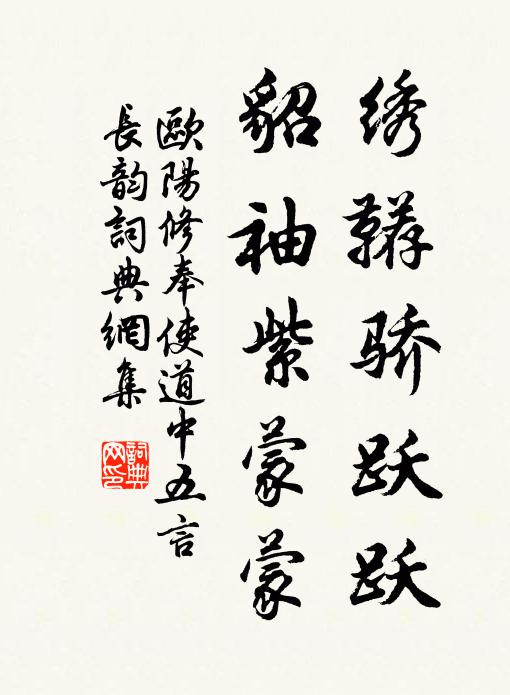 绣鞯骄跃跃
貂袖紫蒙蒙
歐陽修奉使道中五言
長韵詞典網集
詞典
网印